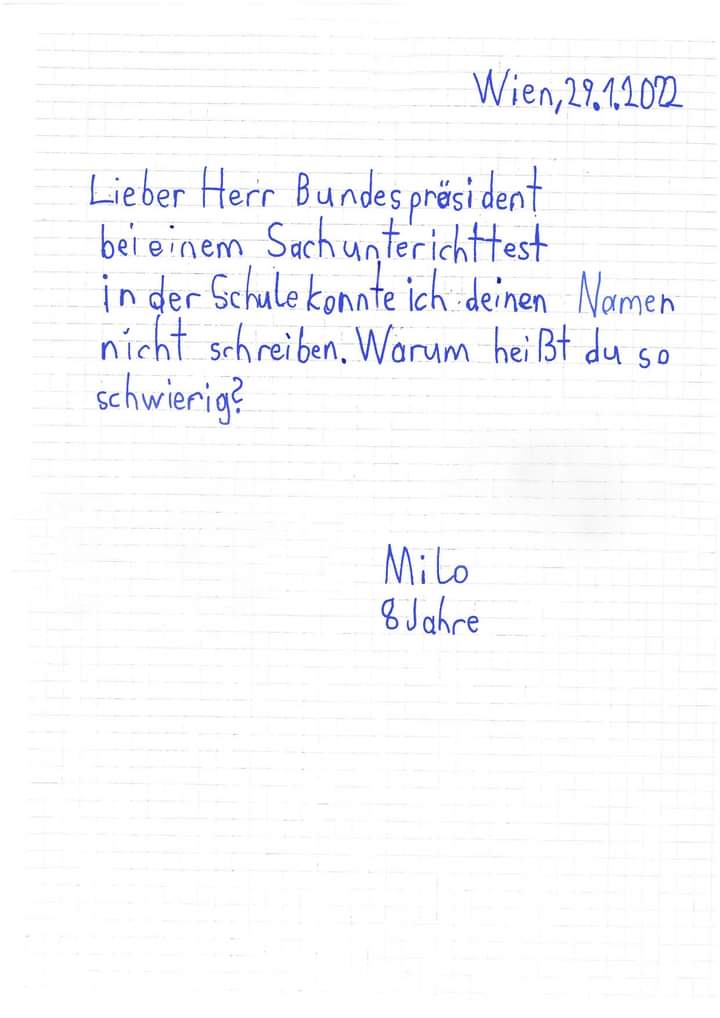 Wien, 29.1.2022
Lieber Herr Bundespräsident
bei einem Sachunterichttest
in der Schule konnte ich deinen Namen
nicht schreiben. Warum heißt du so
schwierig?
Milo
8 Jahre